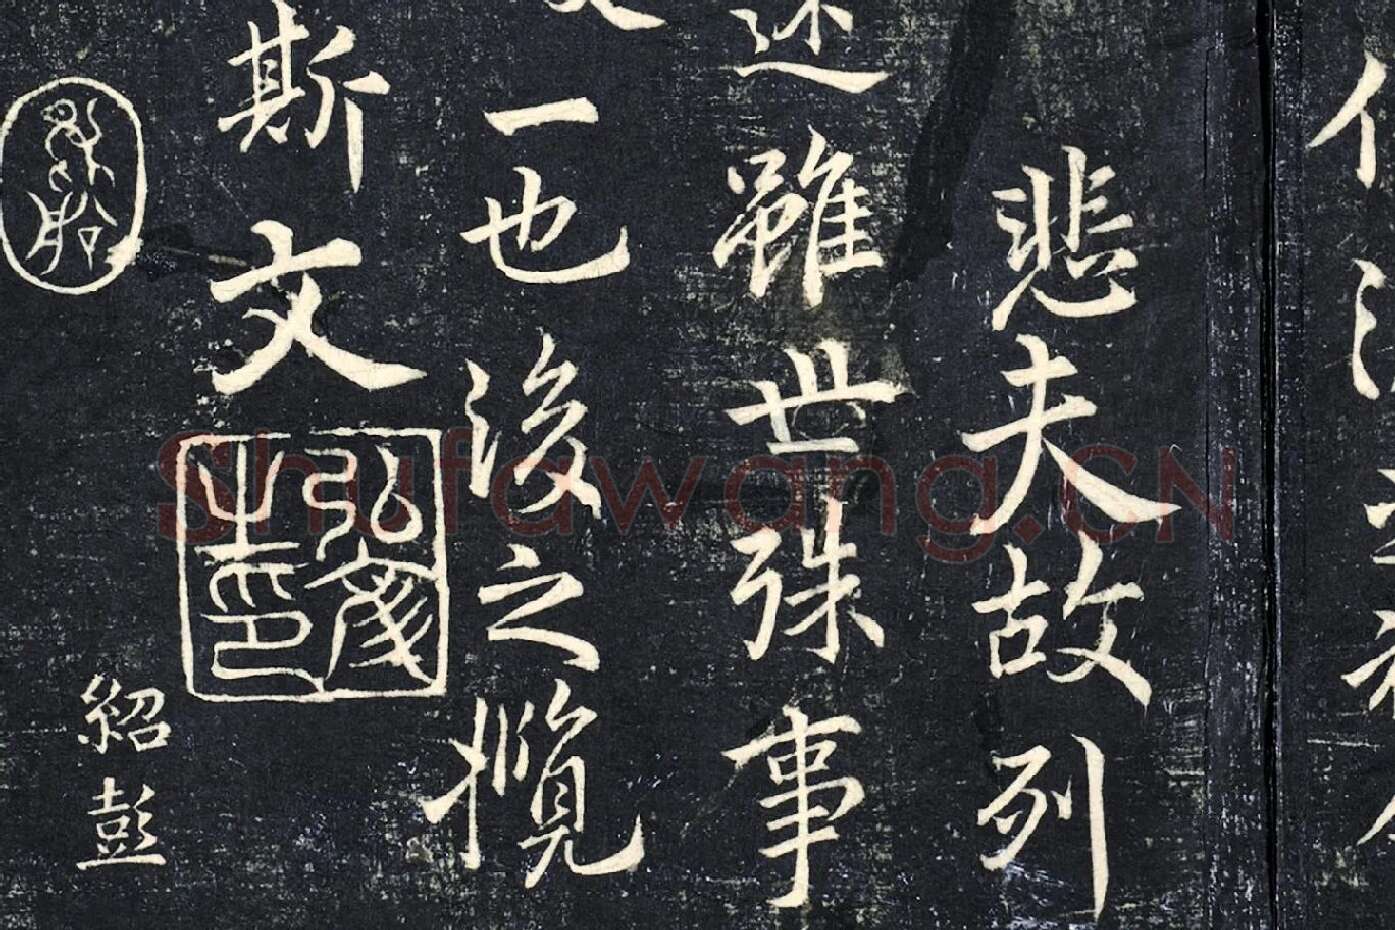 悲夫故列
述雖世殊事
一也後之攬
斯文
紹彭
Shufawang.CN